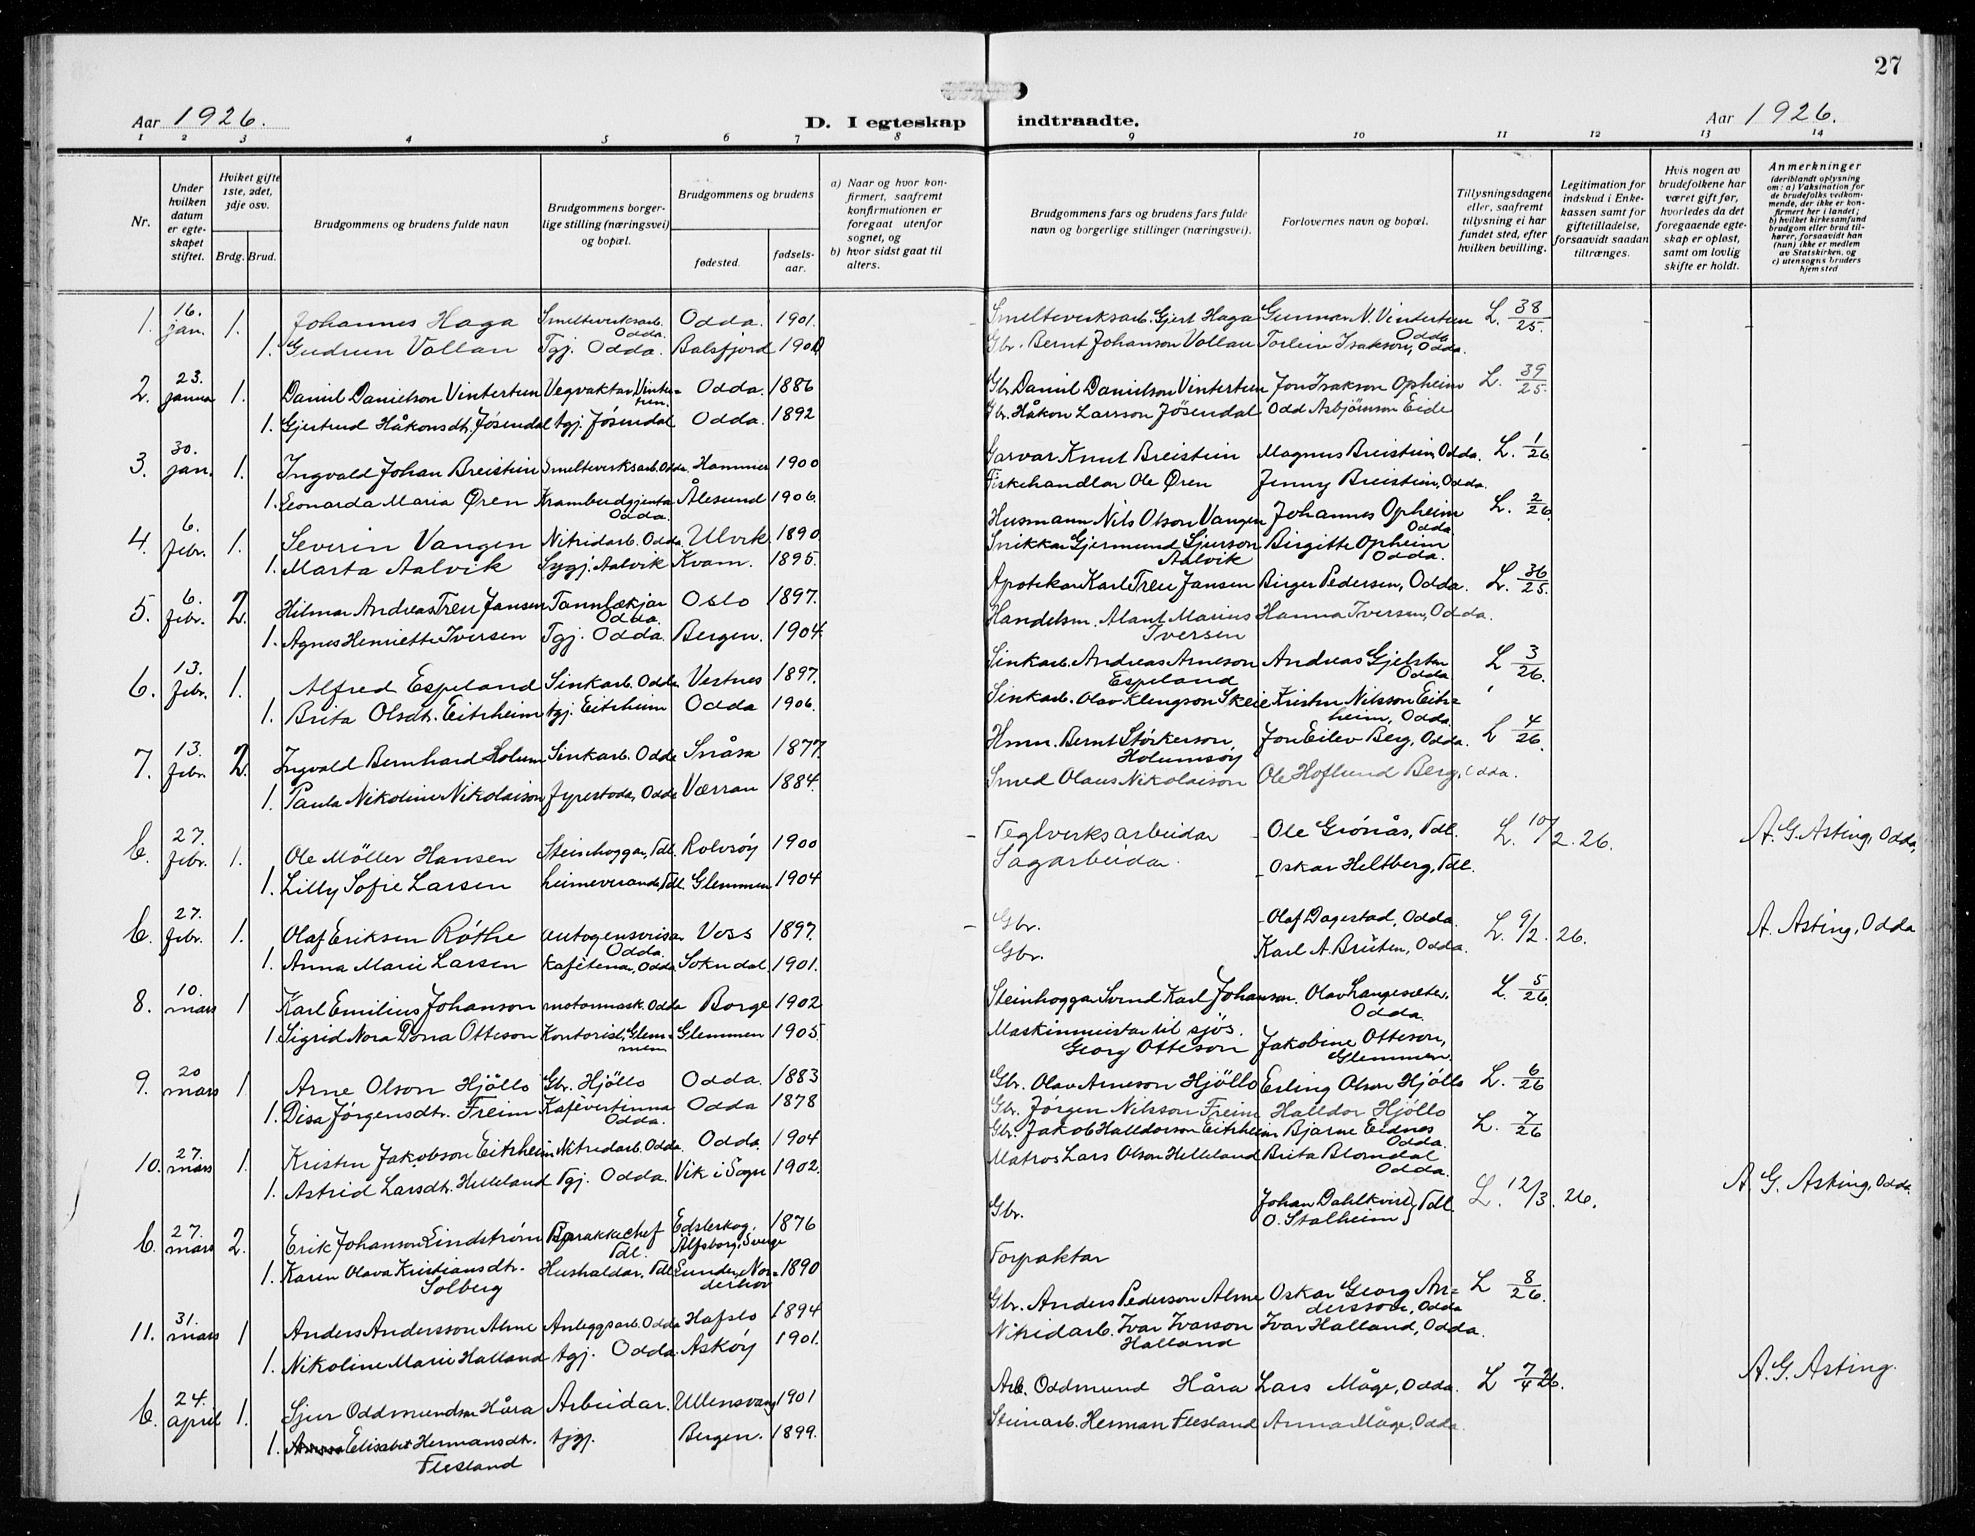 27
Aar 1926.
D. I egteskap indtraadte.
Aar 1926.
1 2 3 4 5 6 7 8 9 10 11 12 13 14
Nr.
Under hvilken datum er egteskapet stiftet.
Hviket gifte 1ste, 2det, 3dje osv.
Brdg. Brud.
Brudgommens og brudens fulde navn
Brudgommens borgerlige stilling (næringsvei) og bopæl.
Brudgommens og brudens
fødested.
fødselsaar.
a) Naar og hvor konfirmert, saafremt konfirmationen er foregaat utenfor sognet, og
b) hvor sidst gaat til alters.
Brudgommens fars og brudens fars fulde navn og borgerlige stillinger (næringsvei).
Forlovernes navn og bopæl.
Tillysningsdagene eller, saafremt tillysning ei har fundet sted, efter hvilken bevilling.
Legitimation for indskud i Enkekassen samt for giftetilladelse, forsaavidt saadan tiltrænges.
Hvis nogen av brudefolkene har været gift før, hvorledes da det foregaaende egteskap er opløst, samt om lovlig skifte er holdt.
Anmerkninger (deriblandt oplysning om: a) Vaksination for de brudefolks vedkommende, der ikke er konfirmert her i landet; b) hvilket kirkesamfund brudgom eller brud tilhører, forsaavidt han (hun) ikke er medlem av Statskirken, og c) utensogns bruders hjemsted
1. 16. jan. 1. Johannes Haga Smelteverksarb. Odda. Odda. 1901. Smelteverksarb. Gjert Haga Gunnar N. Vintertun Odda L. 38/25.
1. Gudrun Vollan Tgj. Odda. Balsfjord 1900 Gbr. Bernt Johanson Vollan Torleiv Isakson, Odda.
2. 23. januar 1. Daniel Danielson Vintertun Vegvaktar, Vintertun. Odda. 1886 Gbr. Daniel Danielson Vintertun Jon Isakson Opheim L. 39/25.
1. Gjertrud Håkonsdt. Jösendal tgj. Jösendal Odda. 1892 Gbr. Håkon Larsson Jösendal Odd Asbjörnson Eide
3. 30. jan. 1. Ingvald Johan Breistein Smelteverksarb. Odda. Hammer 1900 Garvar Knut Breistein Magnus Breistein, Odda. L. 1/26
1. Leonarda Maria Øren Krambudgjenta Odda. Ålesund 1906. Fiskehandlar Ole Øren Jenny Breistein, Odda.
4. 6. febr. 1. Severin Vangen Nitridarb. Odda. Ulvik 1890. Husmann Nils Olson Vangen Johannes Opheim Odda L. 2/26.
1. Marta Aalvik Sygj. Aalvik Kvam. 1895. Snikkar Gjermund Sjurson Aalvik Birgitte Opheim Odda.
5. 6. febr. 2. Hilmar Andreas Treu Jansen Tannlækjar Odda. Oslo 1897. Apotekar Karl Treu Jansen Birger Pedersen, Odda. L. 36/25.
1. Agnes Henriette Iversen Tgj. Odda. Bergen. 1904. Handelsm. Alant Marius Iversen Hanna Iversen, Odda.
6. 13. febr. 1. Alfred Espeland Sinkarb. Odda Vestnes 1897. Sinkarb. Andreas Arneson Espeland Andreas Gjelsten Odda L 3/26.
1. Brita Olsdt. Eitrheim tgj. Eitrheim Odda 1906. Sinkarb. Olav Klengson Skeie Kristen Nilsson Eitrheim, Odda.
7. 13. febr. 2. Ingvald Bernhard Holum Sinkarb. Odda Snåsa 1877. Hmn. Bernt Störkerson Holumsöy Jon Eilev Berg, Odda. L 4/26.
1. Paula Nikoline Nikolaison fyrestoda, Odda Værran 1884. Smed Olaus Nikolaison Ole Hoflund Berg, Odda.
b. 27. febr. 1. Ole Möller Hansen Steinhoggar, Tdl. Rolvsöy 1900 Teglverksarbeidar Ole Grönås, Tdl. L. 10/2. 26. A. G. Asting, Odda,
1. Lilly Sofie Larsen heimeverande, Tdl. Glemmen 1904 Sagarbeidar. Oskar Heltberg, Tdl.
b. 27. febr. 1. Olaf Eriksen Röthe autogensveisar Odda. Voss 1897. Gbr. Olaf Dagestad, Odda. L. 9/2. 26. A. Asting, Odda
1. Anna Marie Larsen kafétena, Odda Sokndal. 1901. Gbr. Karl A. Bruten, Odda.
8. 10. mars 1 Karl Emilius Johanson motormask. Odda Borge 1902 Steinhoggar Svend Karl Johanson. Olav Langesæter, Odda. L. 5/26.
1. Sigrid Nora Dona Otteson Kontorist, Glemmen Glemmen 1905. Maskinmeistar til sjös. Georg Otteson Jakobine Otteson, Glemmen
9. 20 mars 1 Arne Olson Hjöllo Gbr. Hjöllo Odda. 1883 Gbr. Olav Arneson Hjöllo Erling Olson Hjöllo L. 6/26
1. Disa Jörgensdtr. Freim Kafévertinna Odda. Odda 1878 Gbr. Jörgen Nilsson Freim Halldor Hjöllo
10. 27. mars 1. Kristen Jakobson Eitrheim Nitridarb. Odda. Odda. 1904 Gbr. Jakob Halldorson Eitrheim Bjarne Eidnes Odda. L. 7/26
1. Astrid Larsdt. Helleland Tgj. Odda. Vik i Sogn 1902. Matros Lars Olson Helleland Brita Blomdal Odda.
b. 27. mars 2. Erik Johanson Lindström Brakkechef Tdl. Edsleskog, Älfsborg, Sverge 1876 Gbr. Johan Dahlkvist O. Stalheim } Tdl L. 12/3. 26. A. G. Asting, Odda.
1. Karen Olava Kristiansdtr. Solberg Hushaldar, Tdl Lunder, Norderhov 1890 Forpaktar
11. 31. mars 1 Anders Andersson Alme Anleggsarb. Odda Hafslo 1894 Gbr. Anders Pederson Alme Oskar Georg Andersson, Odda L 8/26.
1. Nikoline Marie Halland tgj. Odda. Asköy 1901. Nitridarb. Ivar Ivarson Halland Ivar Halland, Odda.
b. 24. april 1. Sjur Oddmundson Håra Arbeidar. Ullensvang 1901 Arb. Oddmund Håra Lars Måge, Odda. L 7/4 26. A. G. Asting.
1. Elisabet Hermansdt. Flesland tgj. Bergen. 1899. Steinarb. Herman Flesland Anna Måge, Odda.